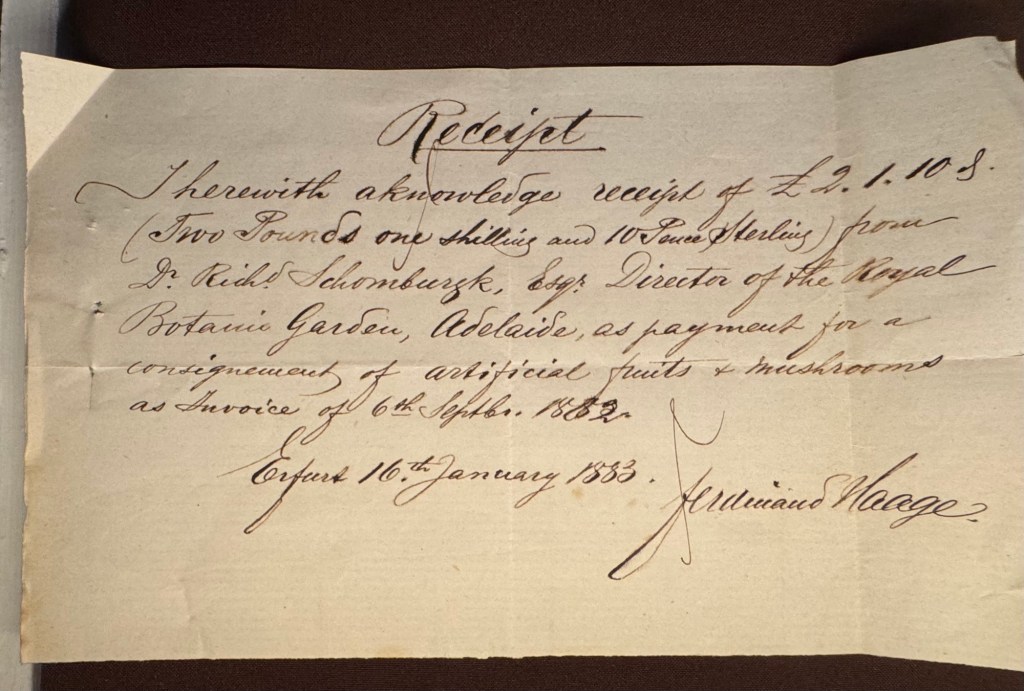 Receipt
I herewith aknowledge receipt of £ 2. 1. 10 d.
(Two Pounds one shilling and 10 Pence Sterling) from
Dr. Richd Schomburgk, Esqr. Director of the Royal
Botanic Garden, Adelaide, as payment for a
consignement of artificial fruits & mushrooms
as Invoice of 6th Septbr. 1882.
Erfurt 16th January 1883.
Ferdinand Haage.